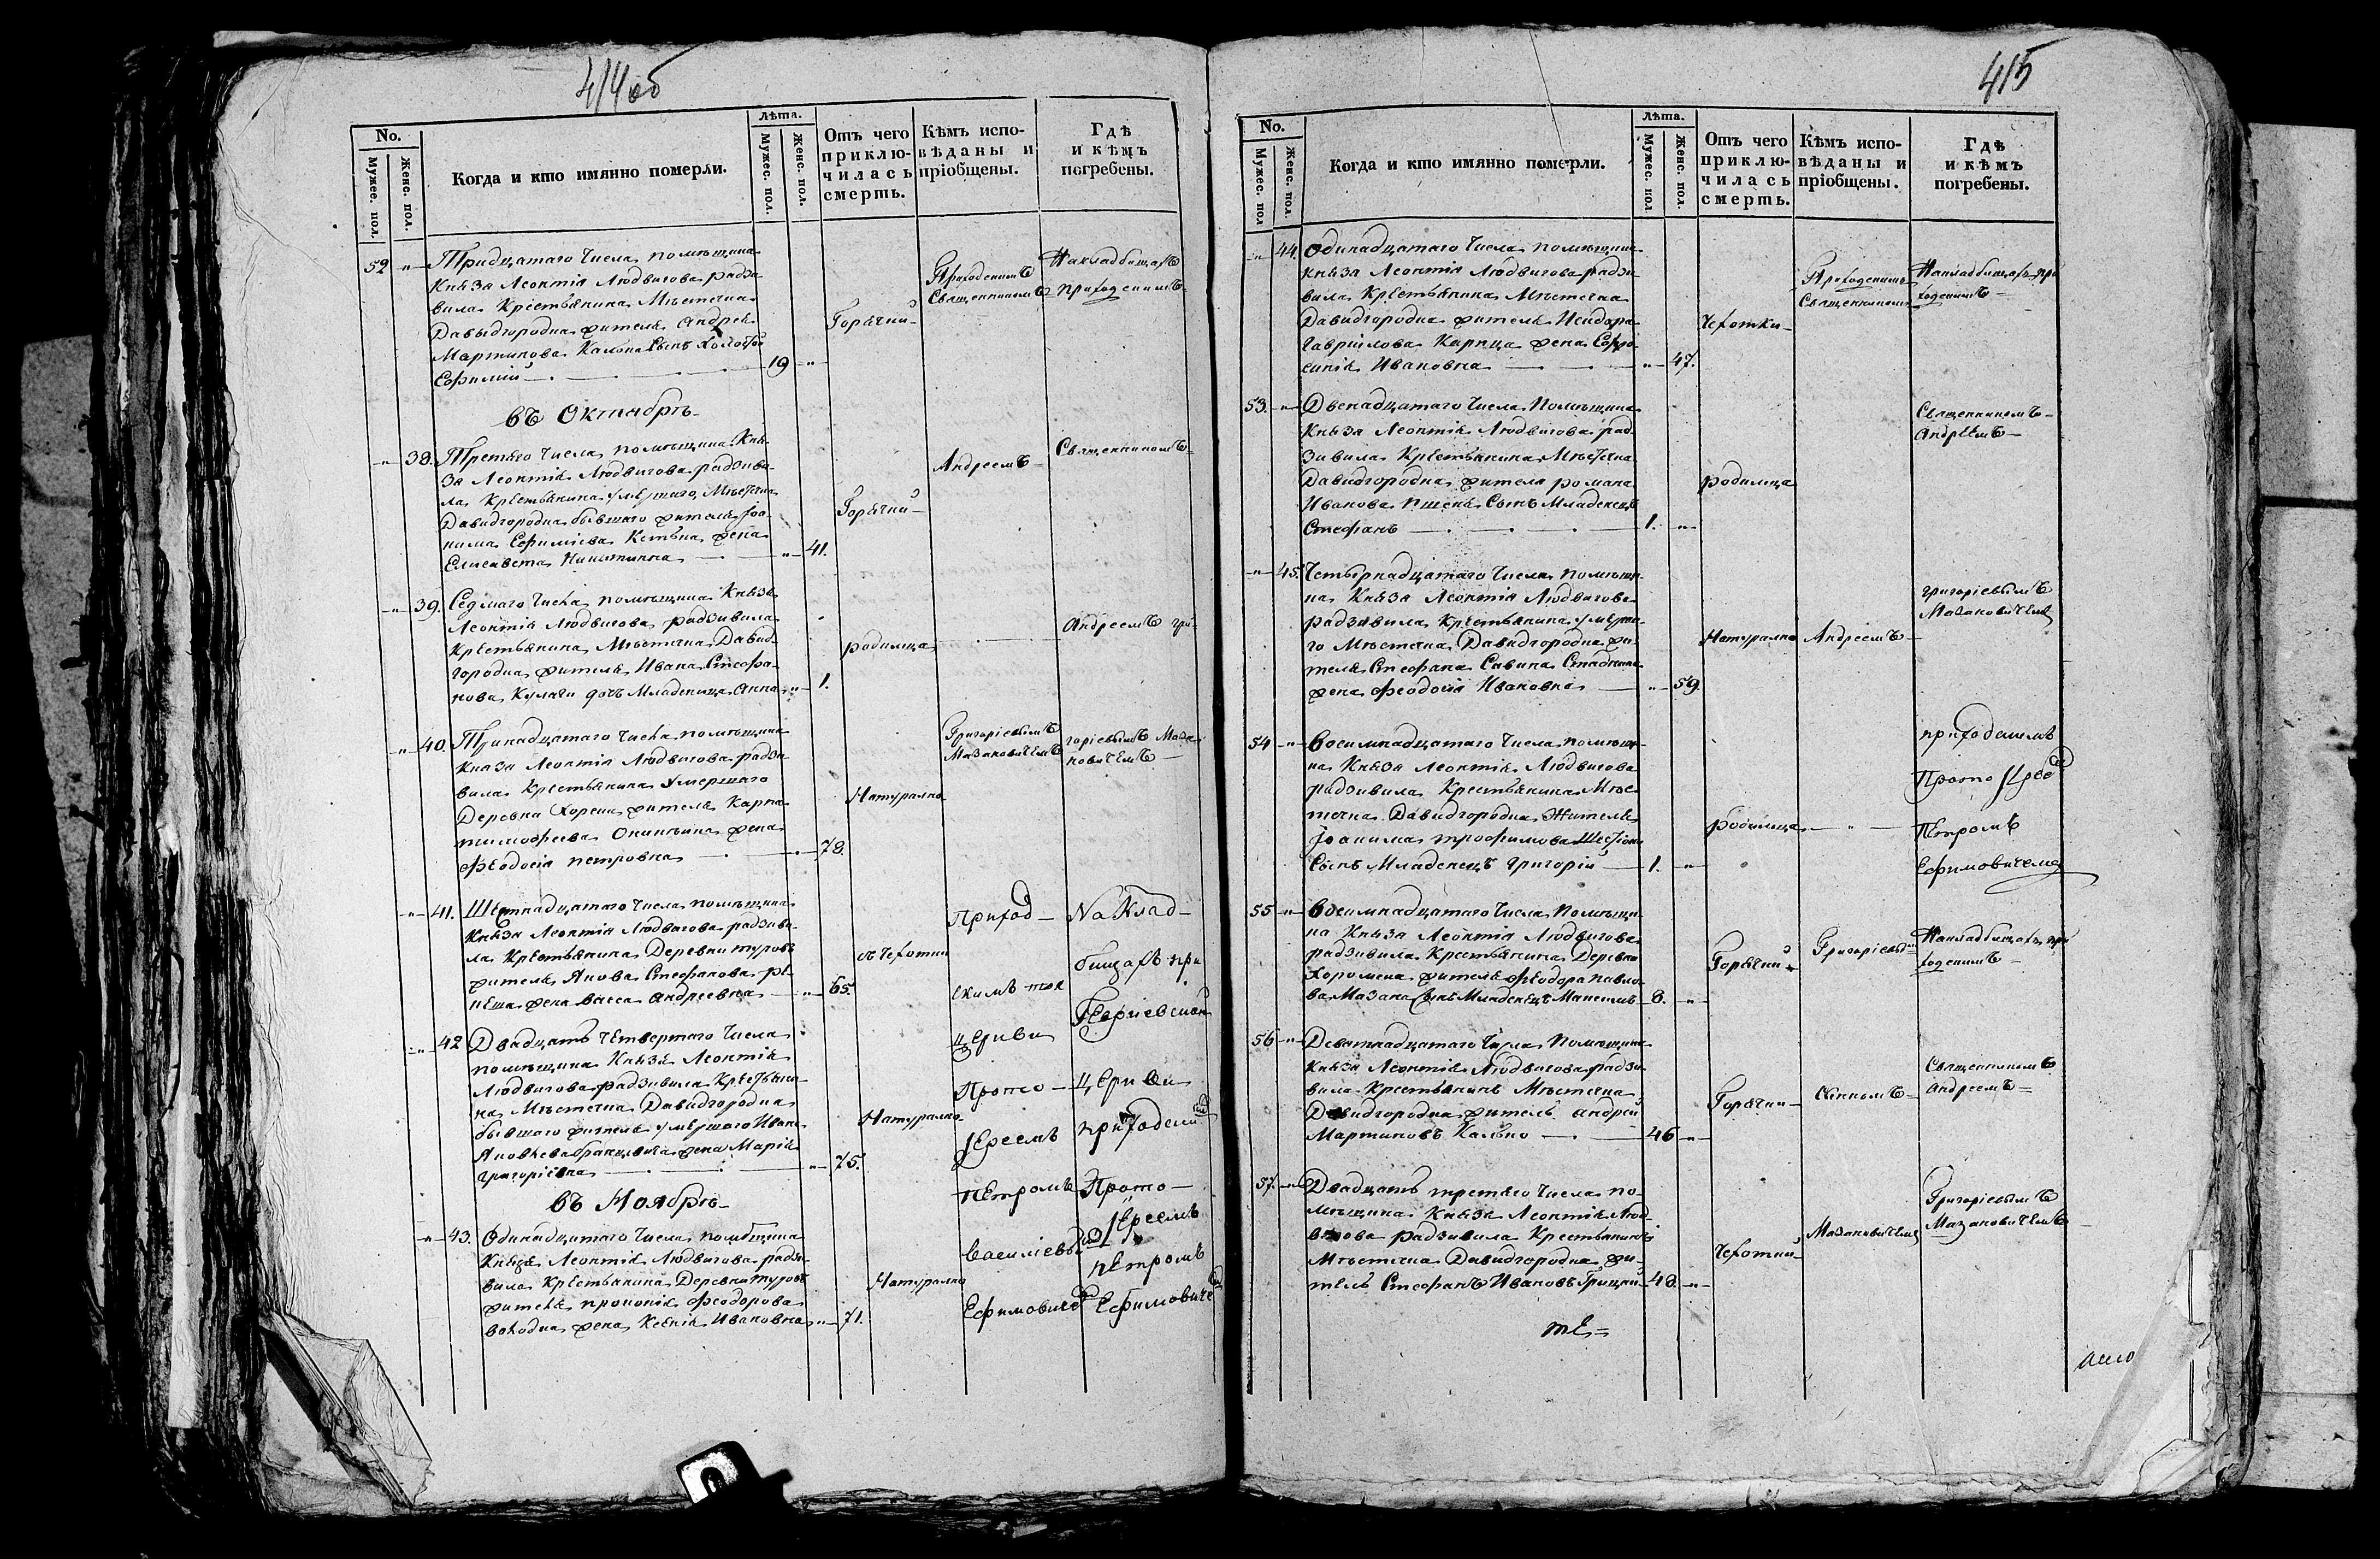 414об
No.
Мужес. пол.
Женс. пол.
Когда и кто имянно померли.
Лѣта.
Мужес. пол.
Женс. пол.
Отъ чего приклю-чилась смерть.
Кѣмъ испо-вѣданы и пріобщены.
Гдѣ и кѣмъ погребены.
52 Тридцатаго Числа помѣщика
Князя Леонтія Людвигова радзи-
вила Крестьянина Мѣстечка
Давыдгородка жителя Андрея
Мартинова Сынъ Холостой
Ефимій 19
Горячки
Приходскимъ
Священникомъ
На кладбищахъ
приходскимъ
въ Октябрѣ
38. Третяго Числа помѣщика Кня-
зя Леонтія Людвигова радзиви-
ла Крестьянина умершаго Мѣстечка
Давидгородка бывшаго жителя Іоа-
кима Ефиміева жена
Елисавета Никитична 41.
Горячки
Андреемъ
Священникомъ
39. Седмаго Числа помѣщика Князя
Леонтія Людвигова радзивила
Крестьянина Мѣстечка Давид-
городка жителя Ивана Стефа-
нова Кулаги дочь Младеница Анна 1.
родимца
Андреемъ гри-
40. Тринадцатаго Числа помѣщика
Князя Леонтія Людвигова радзи-
вила Крестьянина Умершаго
Деревни Хорска жителя Карпа
тимофеева жена
Феодосія петровна 78.
Натурално
Григоріевымъ
Мазановичемъ
горіевымъ Маза-
новичемъ
41. Шестнадцатаго Числа помѣщика
Князя Леонтія Людвигова радзиви-
ла Крестьянина Деревни туровъ
жителя Якова Стефанова ре-
жена васса Андреевна 65.
отъ Чехотки
Приход-
скимъ тоя
церкви
На Клад-
бищахъ при
Георгіевской
42 Двадцать Четвертаго Числа
помѣщика Князя Леонтія
Людвигова радзивила Крестьяни-
на Мѣстечка Давидгородка
бывшаго жителя умершаго Ивана
жена Марія
Григоріевна 75.
Натурално
Прото-
Іереемъ
петромъ
церкви
приходскимъ
Прото-
въ Ноябрѣ
43. Одинадцатаго Числа помѣщика
Князя Леонтія Людвигова радзи-
вила Крестьянина Деревни туровъ
жителя прокопія Феодорова
жена Ксенія Ивановна 71.
Натурално
Василіевымъ
Ефимовичемъ
Іереемъ
петромъ
Ефимовичемъ
415
No.
Мужес. пол
Женс. пол.
Когда и кто имянно померли.
Лѣта.
Мужес. пол
Женс. пол.
Отъ чего приклю-чилась смерть.
Кѣмъ испо-вѣданы и пріобщены.
Гдѣ и кѣмъ погребены.
44. Одинадцатаго Числа помѣщика
Князя Леонтія Людвигова радзи-
вила Крестьянина Мѣстечка
Давидгородка жителя Исидора
Гавріилова Карпца жена Ефро-
синія Ивановна 47.
Чехотки
Приходскимъ
Священникомъ
На кладбищахъ при-
ходскимъ
53. Двенадцатаго Числа Помѣщика
Князя Леонтія Людвигова рад-
зивила Крестьянина Мѣстечка
Давидгородка жителя романа
Иванова Сынъ Младенецъ
Стефанъ 1.
родимца
Священникомъ
Андреемъ
45. Четырнадцатаго Числа помѣщи-
ка Князя Леонтія Людвигова
радзивила Крестьянина умерша-
го Мѣстечка Давидгородка жи-
теля Стефана Савина
жена Феодосія Ивановна 59.
Натурално
Андреемъ
Григоріевымъ
Мазановичемъ
54 Восимнадцатаго Числа помѣщи-
ка Князя Леонтія Людвигова
радзивила Крестьянина Мѣс-
течка Давидгородка Жителя
Іоакима трофимова
Сынъ Младенецъ Григорій 1.
родимца
приходскимъ
Прото Іереемъ
Петромъ
Ефимовичемъ
55 Восимнадцатаго Числа Помѣщи-
ка Князя Леонтія Людвигова
радзивила Крестьянина Деревни
Хоромска жителя Феодора павло-
ва Мазана сынъ Младенецъ 8.
Горячки
Григоріевымъ
На кладбищахъ при
ходскимъ
56 Девятнадцатаго Числа Помѣщика
Князя Леонтія Людвигова радзи-
вила Крестьянинъ Мѣстечка
Давидгородка житель Андрей
Мартиновъ 46
Горячки
Священникомъ
Андреемъ
57. Двадцать третяго Числа по-
мѣщика Князя Леонтія Люд-
вигова радзивила Крестьянинъ
Мѣстечка Давидгородка жи-
тель Стефанъ Ивановъ Грицкій 48.
Чехотки
Мазановичемъ
Григоріевымъ
Мазановичемъ